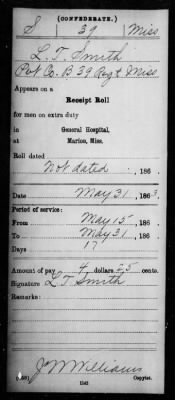 (CONFEDERATE.)
S 39 Miss
L. T. Smith
Pvt Co. B 39 Regt Miss
Appears on a
Receipt Roll
for men on extra duty
in General Hospital,
at Marion, Miss.
Roll dated
Not dated, 186
Date May 31, 186 3.
Period of service:
From May 15, 186
To May 31, 186
Days 17
Amount of pay 4 dollars 25 cents.
Signature L T Smith
Remarks:
J M Williams
Copyist.